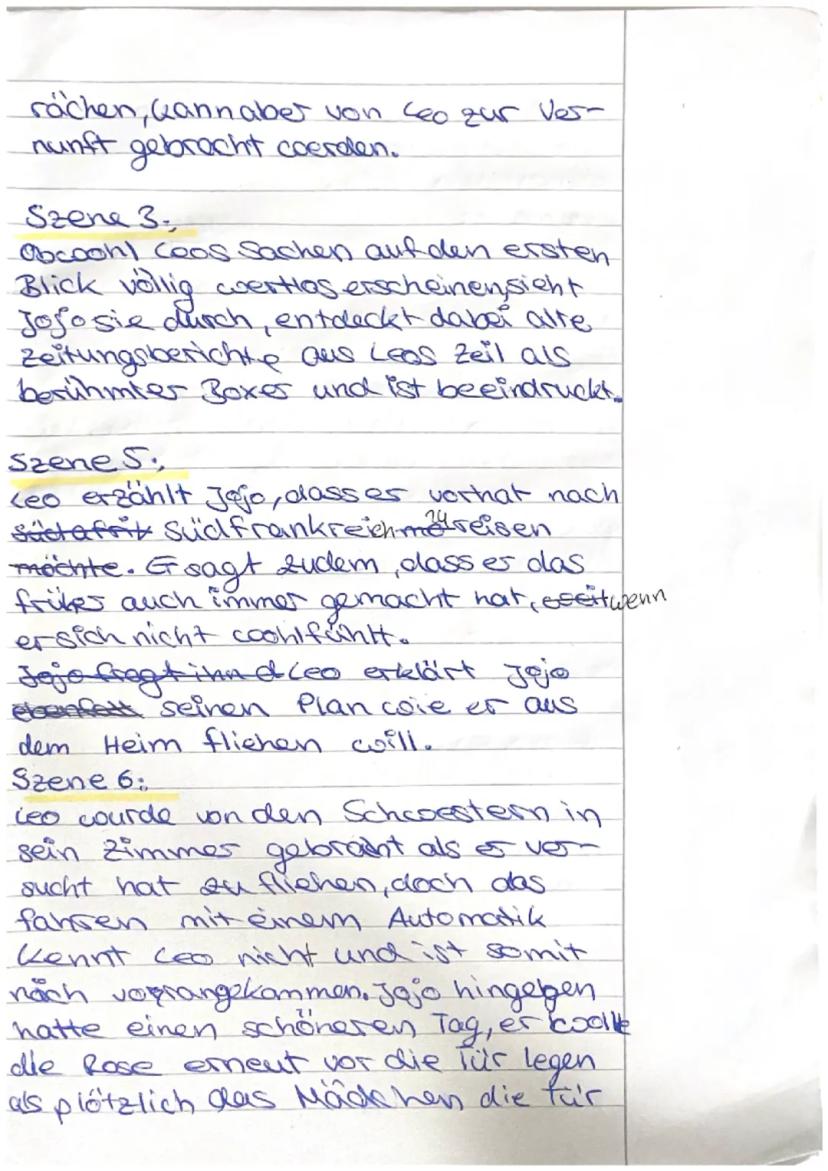 rächen, kann aber von Leo zur Ver-
nunft gebracht werden.
Szene 3:
Obwohl Leos Sachen auf den ersten
Blick völlig wertlos erscheinen, sieht
Jojo sie durch, entdeckt dabei alte
Zeitungsberichte aus Leos Zeit als
berühmter Boxer und ist beeindruckt.
Szene 5:
Leo erzählt Jojo, dass er vorhat nach
Südafrik Südfrankreich mö zu reisen
möchte. Er sagt zudem, dass er das
früher auch immer gemacht hat, wenn
er sich nicht wohlfühlt.
Jojo fragt ihn d Leo erklärt Jojo
ebenfalls seinen Plan wie er aus
dem Heim fliehen will.
Szene 6:
Leo wurde von den Schwestern in
sein Zimmer gebracht als er ver-
sucht hat zu fliehen, doch das
fahren mit einem Automatik
kennt Leo nicht und ist somit
nach vorrangekommen. Jojo hingegen
hatte einen schöneren Tag, er wollte
die Rose erneut vor die Tür legen
als plötzlich das Mädchen die Tür